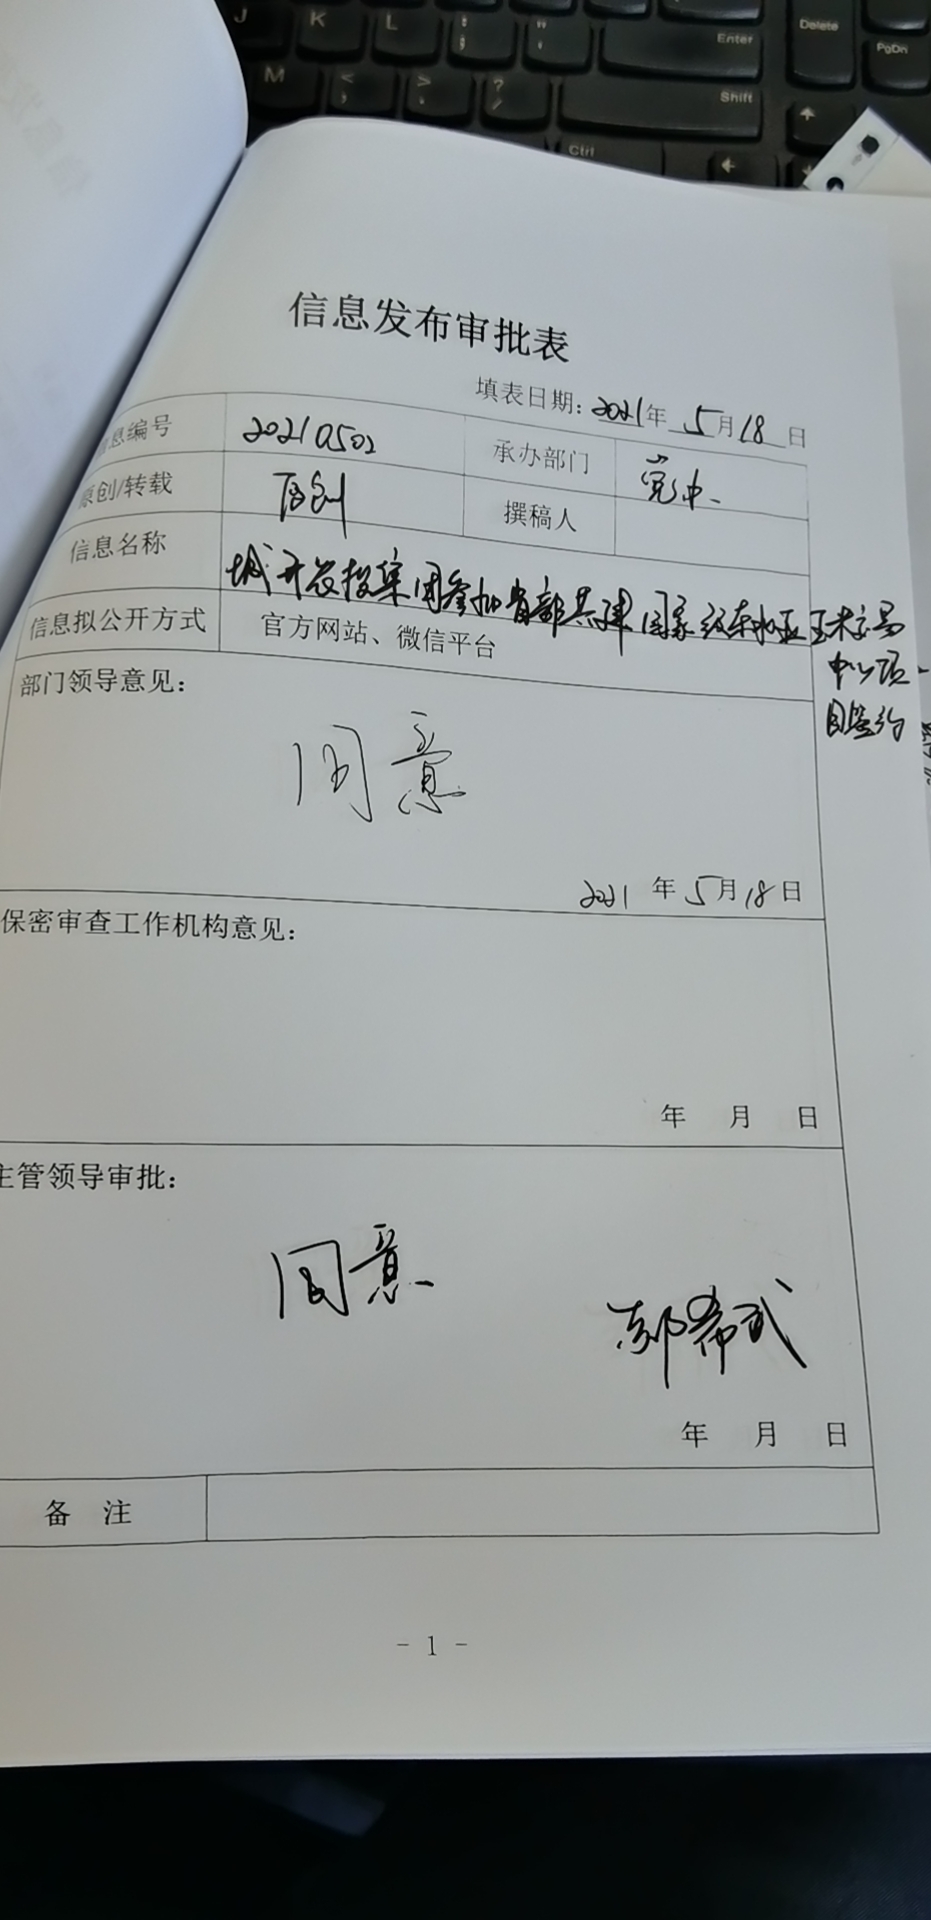 J K L : ; " ' Enter Delete PgDn
M < , > . ? / Shift
Ctrl
信息发布审批表
填表日期: 2021年 5月18日
信息编号 20210502 承办部门 党办
原创/转载 原创 撰稿人
信息名称 城开发投集团参加省部共建国家级东北亚玉米交易
中心项
目签约
信息拟公开方式 官方网站、微信平台
部门领导意见:
同意
2021 年 5月18日
保密审查工作机构意见:
年 月 日
主管领导审批:
同意
年 月 日
备 注
- 1 -